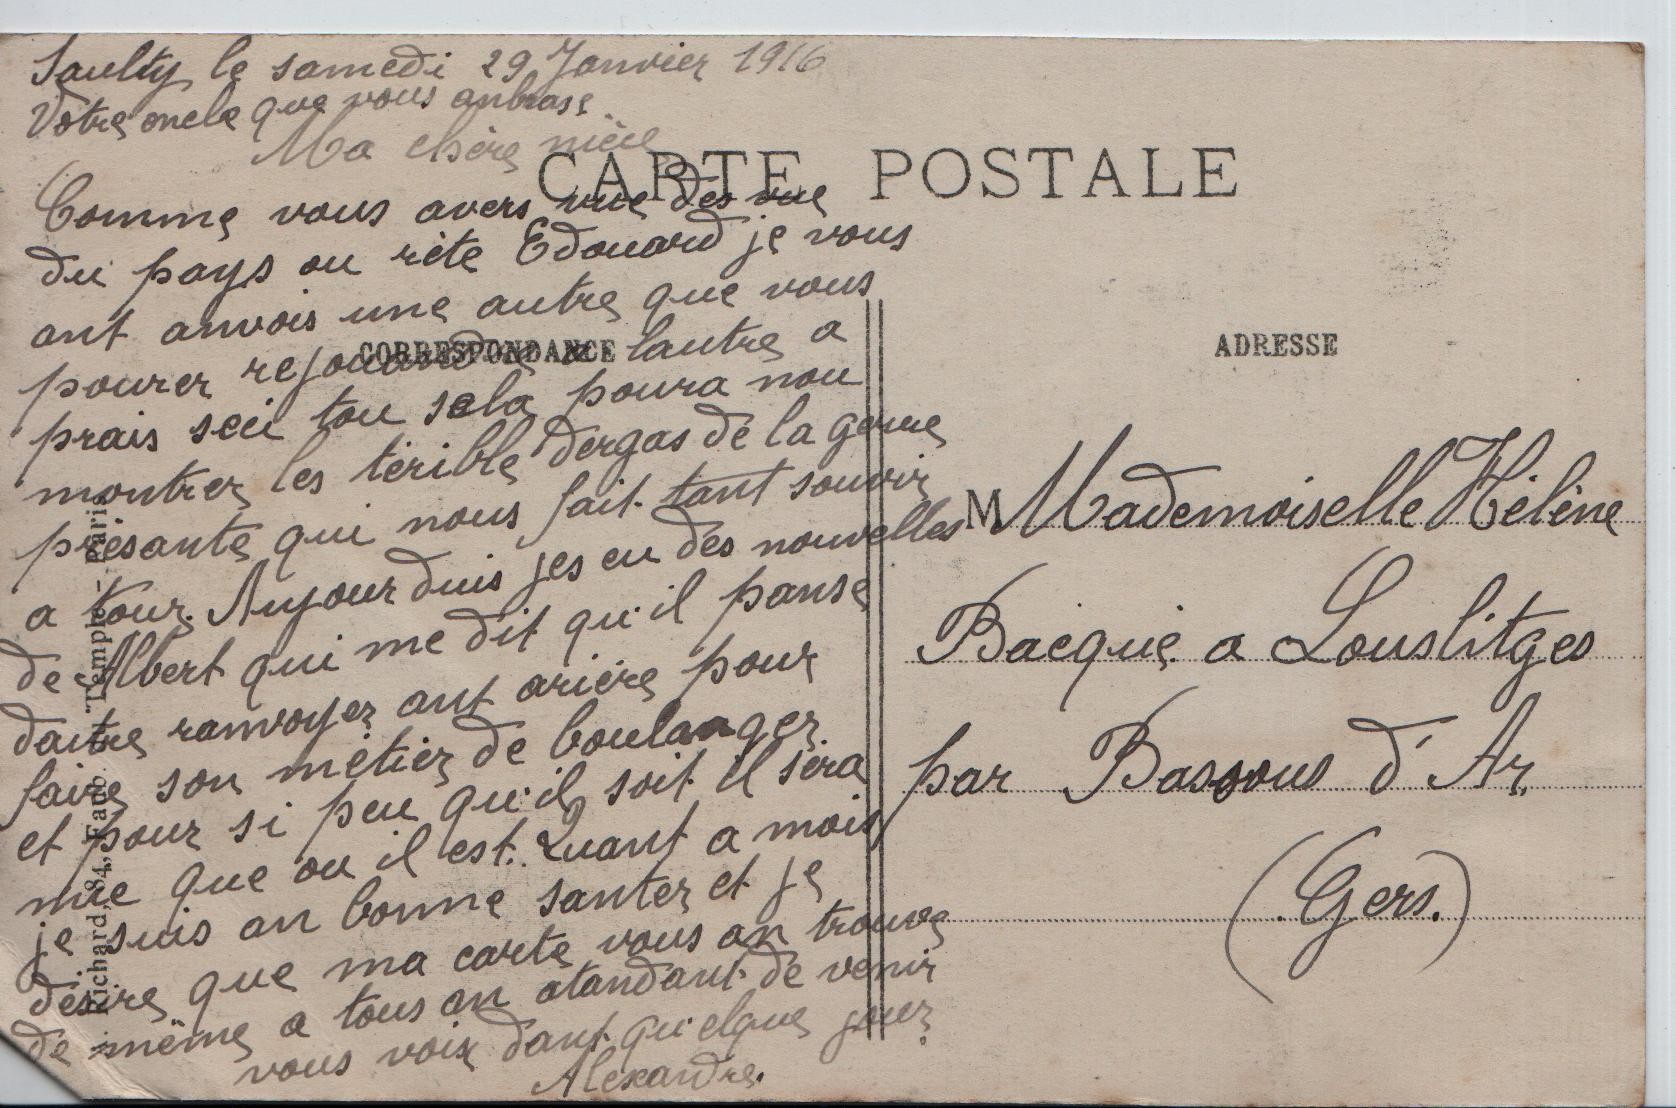 Saulty le samedi 29 Janvier 1916
Votre oncle que vous anbrase
Ma chère nièce
CARTE POSTALE
Comme vous avers vue des vue
du pays ou rète Edouard je vous
ant anvois une autre que vous
pourer rejouandre a lautre a
CORRESPONDANCE
prais seci tou sela poura nou
montrer les terible dergas de la gerre
présante qui nous fait tant souvrir
a tour. Aujourduis jes eu des nouvelles
de Albert qui me dit qu'il panse
daitre ranvoyer ant arière pour
faire son métier de boulanger
et pour si peu qu'il soit il sera
mie que ou il est. Quant a mois
je suis an bonne santer et je
désire que ma carte vous an trouve
de même a tous an atandant de venir
vous voix dant quelque jour
Alexandre.
Richard, 84, Faub. du Temple - Paris
ADRESSE
M Mademoiselle Hélène
Bacquié a Louslitges
par Bassous d'Ar.
(Gers.)